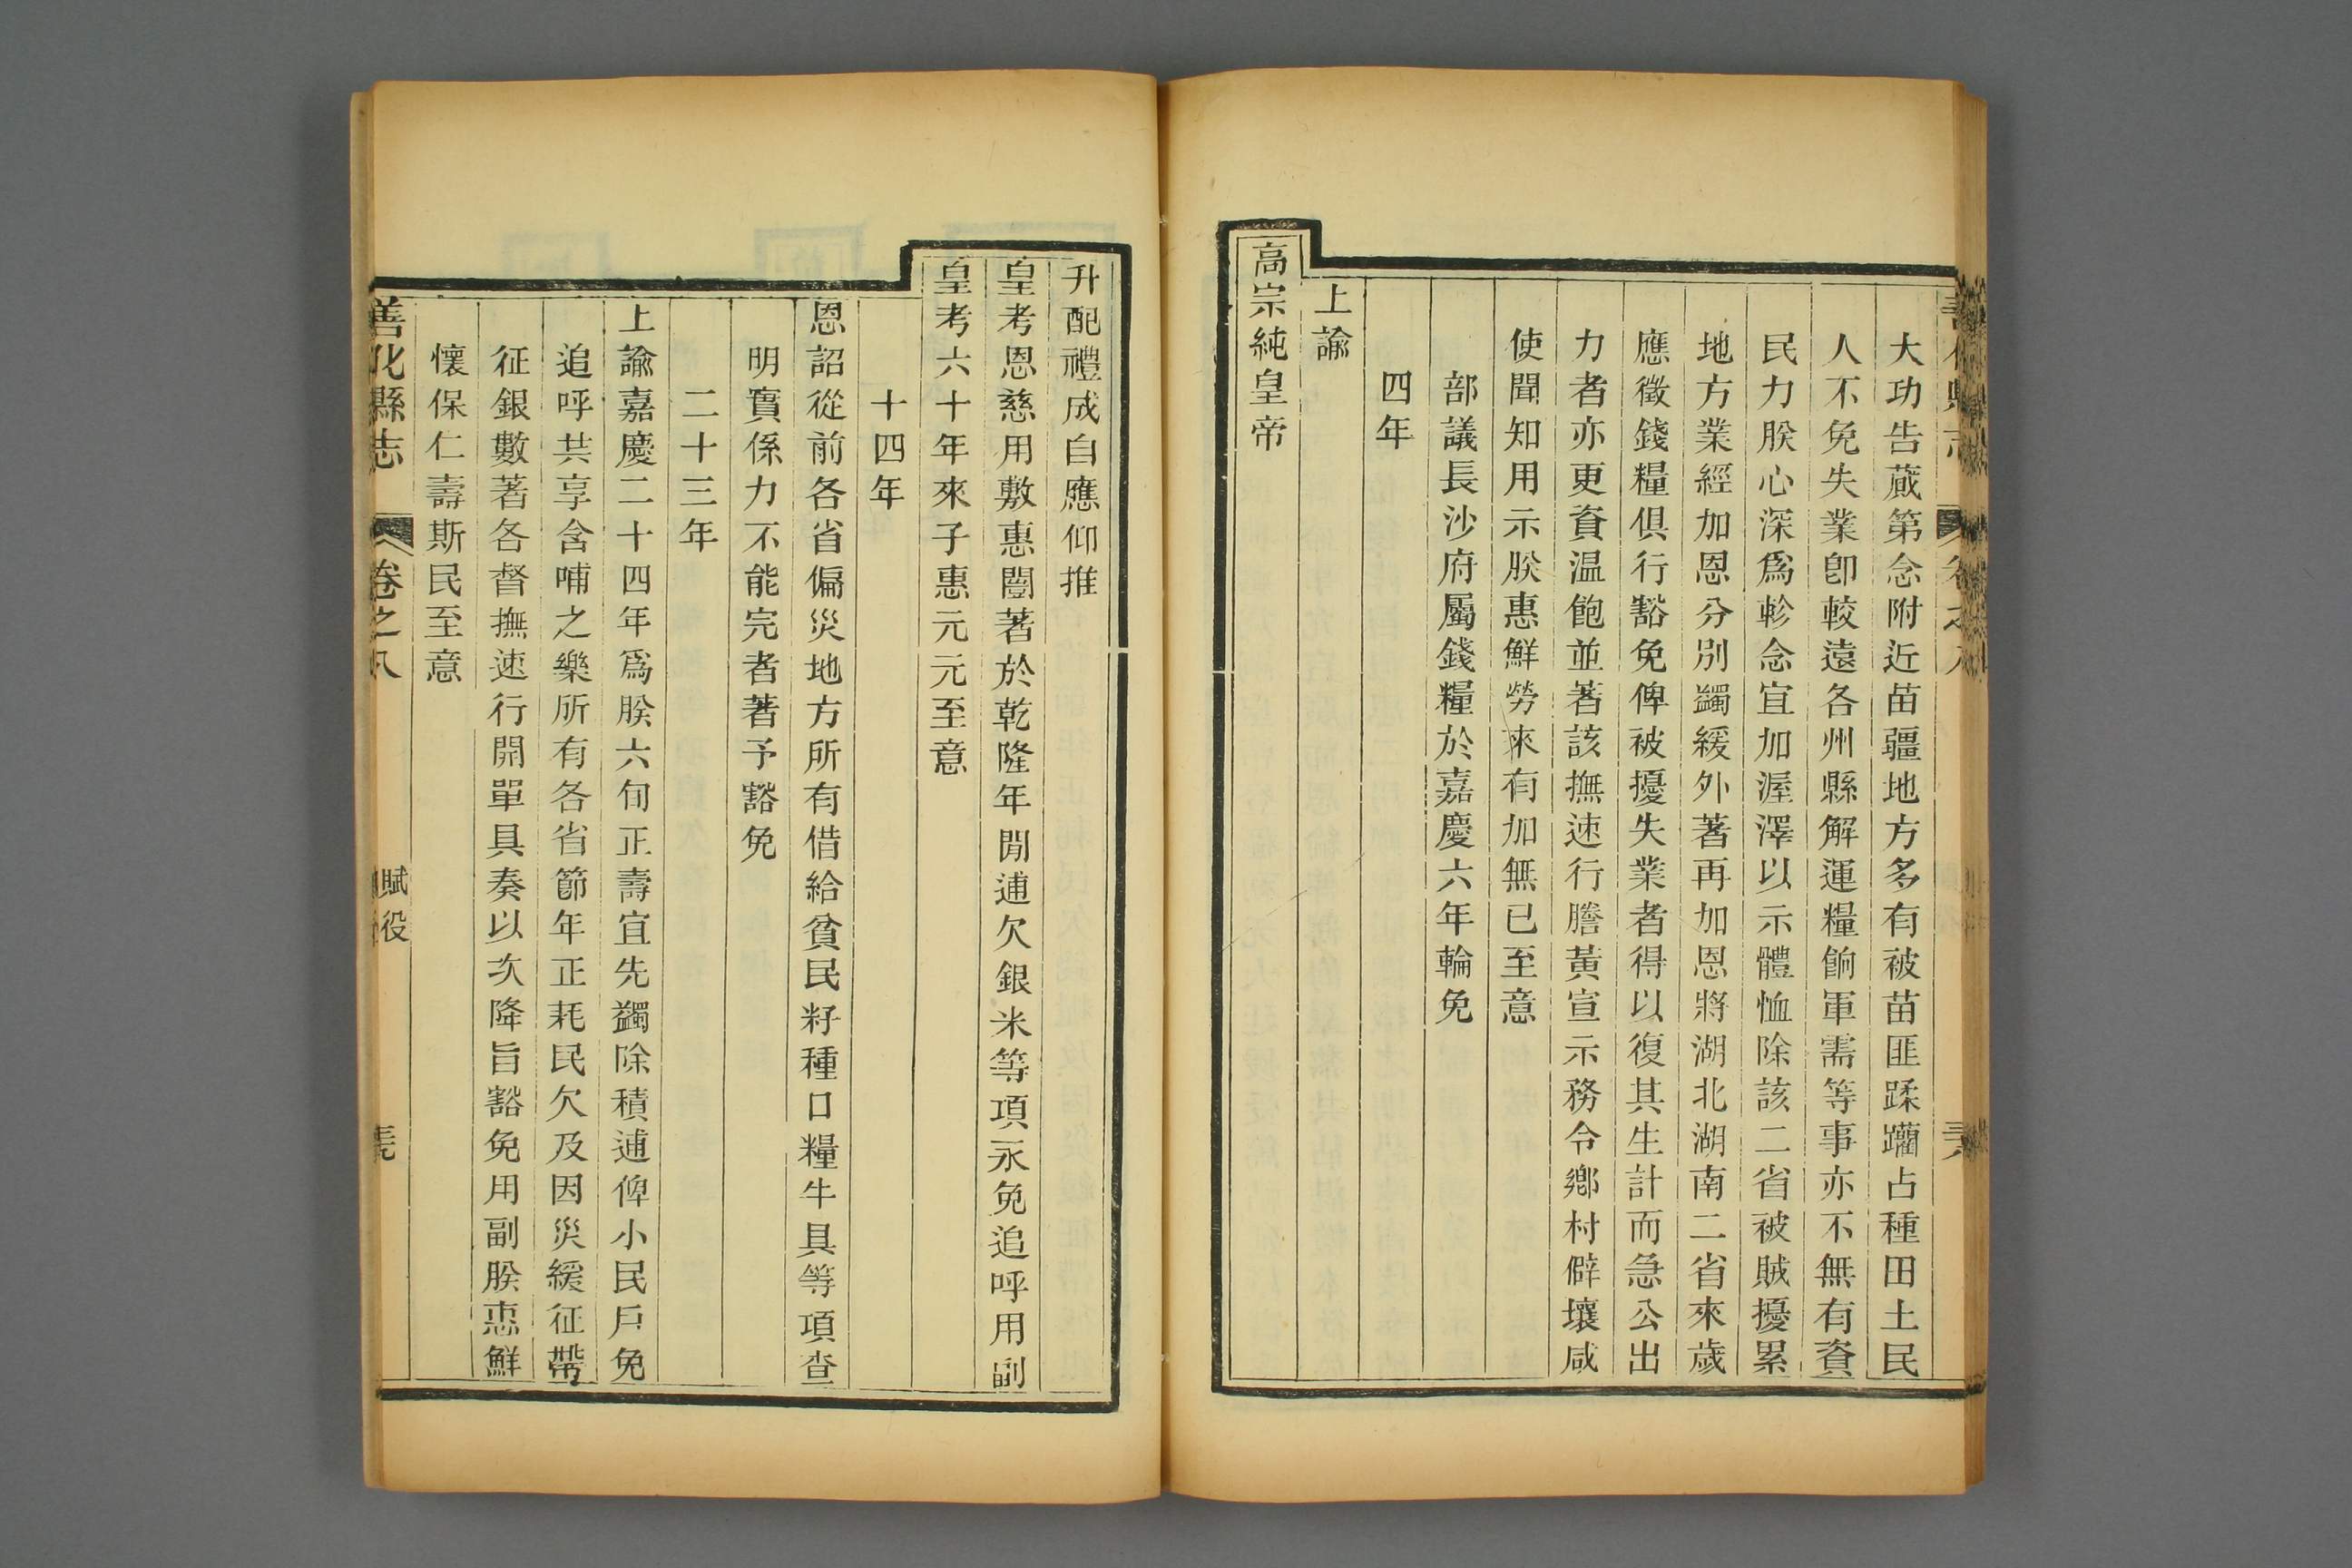 大功告蕆第念附近苗疆地方多有被苗匪蹂躪占種田土民
人不免失業卽較遠各州縣解運糧餉軍需等事亦不無有資
民力朕心深爲軫念宜加渥澤以示體恤除該二省被賊擾累
地方業經加恩分別蠲緩外著再加恩將湖北湖南二省來歲
應徵錢糧俱行豁免俾被擾失業者得以復其生計而急公出
力者亦更資温飽並著該撫速行謄黃宣示務令鄉村僻壤咸
使聞知用示朕惠鮮勞來有加無已至意
部議長沙府屬錢糧於嘉慶六年輪免
四年
上諭
高宗純皇帝
升配禮成自應仰推
皇考恩慈用敷惠闓著於乾隆年閒逋欠銀米等項永免追呼用副
皇考六十年來子惠元元至意
十四年
恩詔從前各省偏災地方所有借給貧民籽種口糧牛具等項查
明實係力不能完者著予豁免
二十三年
上諭嘉慶二十四年爲朕六旬正壽宜先蠲除積逋俾小民戶免
追呼共享含哺之樂所有各省節年正耗民欠及因災緩征帶
征銀數著各督撫速行開單具奏以次降旨豁免用副朕惠鮮
懷保仁壽斯民至意
善化縣志 卷之八 賦役